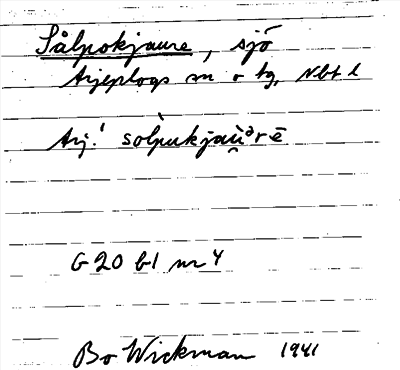 Sålpokjaure, sjö
Arjeplogs sn o tg, Nbt l
Arj.! sòlpukjau̯ᵊrē
G 20 bl nr 4
Bo Wickman 1941